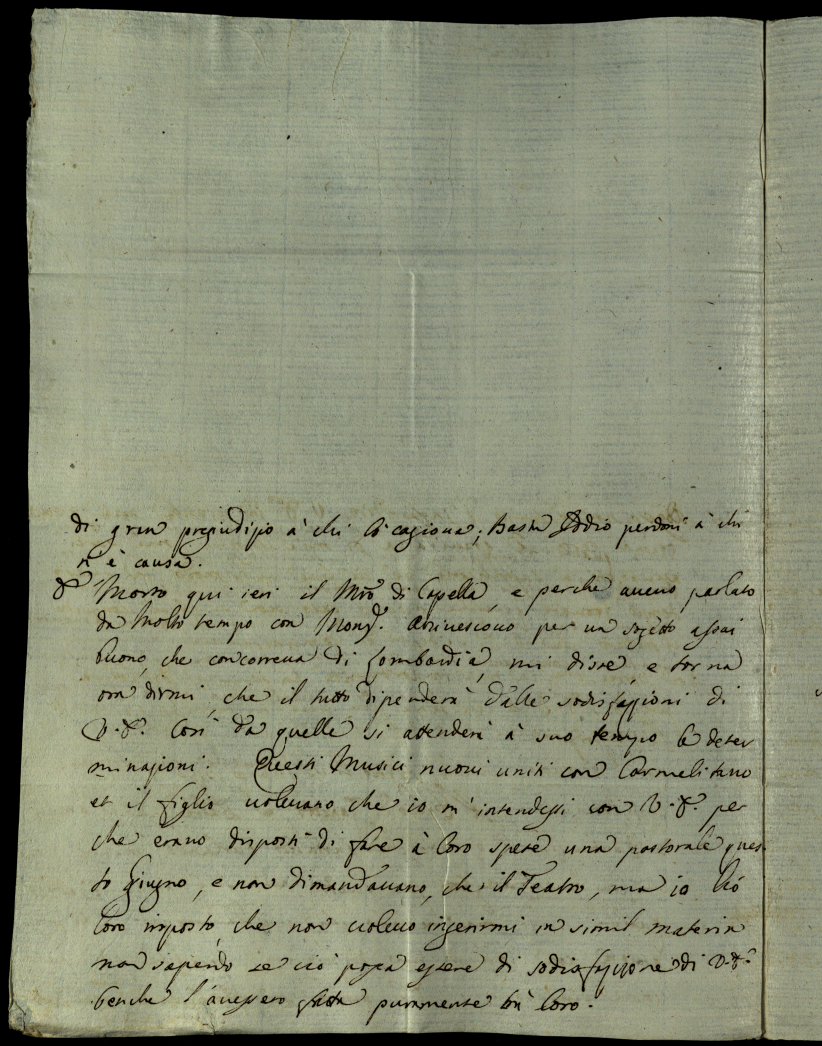 di gran pregiudizio à chi lo cagiona; basta Iddio perdoni à chi
n'è causa.
È Morto qui ieri il Mro di Capella, e perche aueuo parlato
da molto tempo con Monsr. Arciuescouo per un sogetto assai
buono, che concorreua di Lombardia, mi disse, e torna
ora dirmi, che il tutto dipenderà dalle sodisfazzioni di
V.E. Così da quelle si attenderà à suo tempo le deter
minazioni. Questi Musici nuoui uniti con Carmelitano
et il figlio uoleuano che io m'intendessi con V.E. per
che erano disposti di fare à loro spese una pastorale ques
to Giugno, e non dimandauano, che il Teatro, ma io hò
loro risposto, che non uoleuo ingerirmi in simil materia
non sapendo se ciò possa essere di sodisfazzione di V.E.
benche l'auessero fatta puramente trà loro.